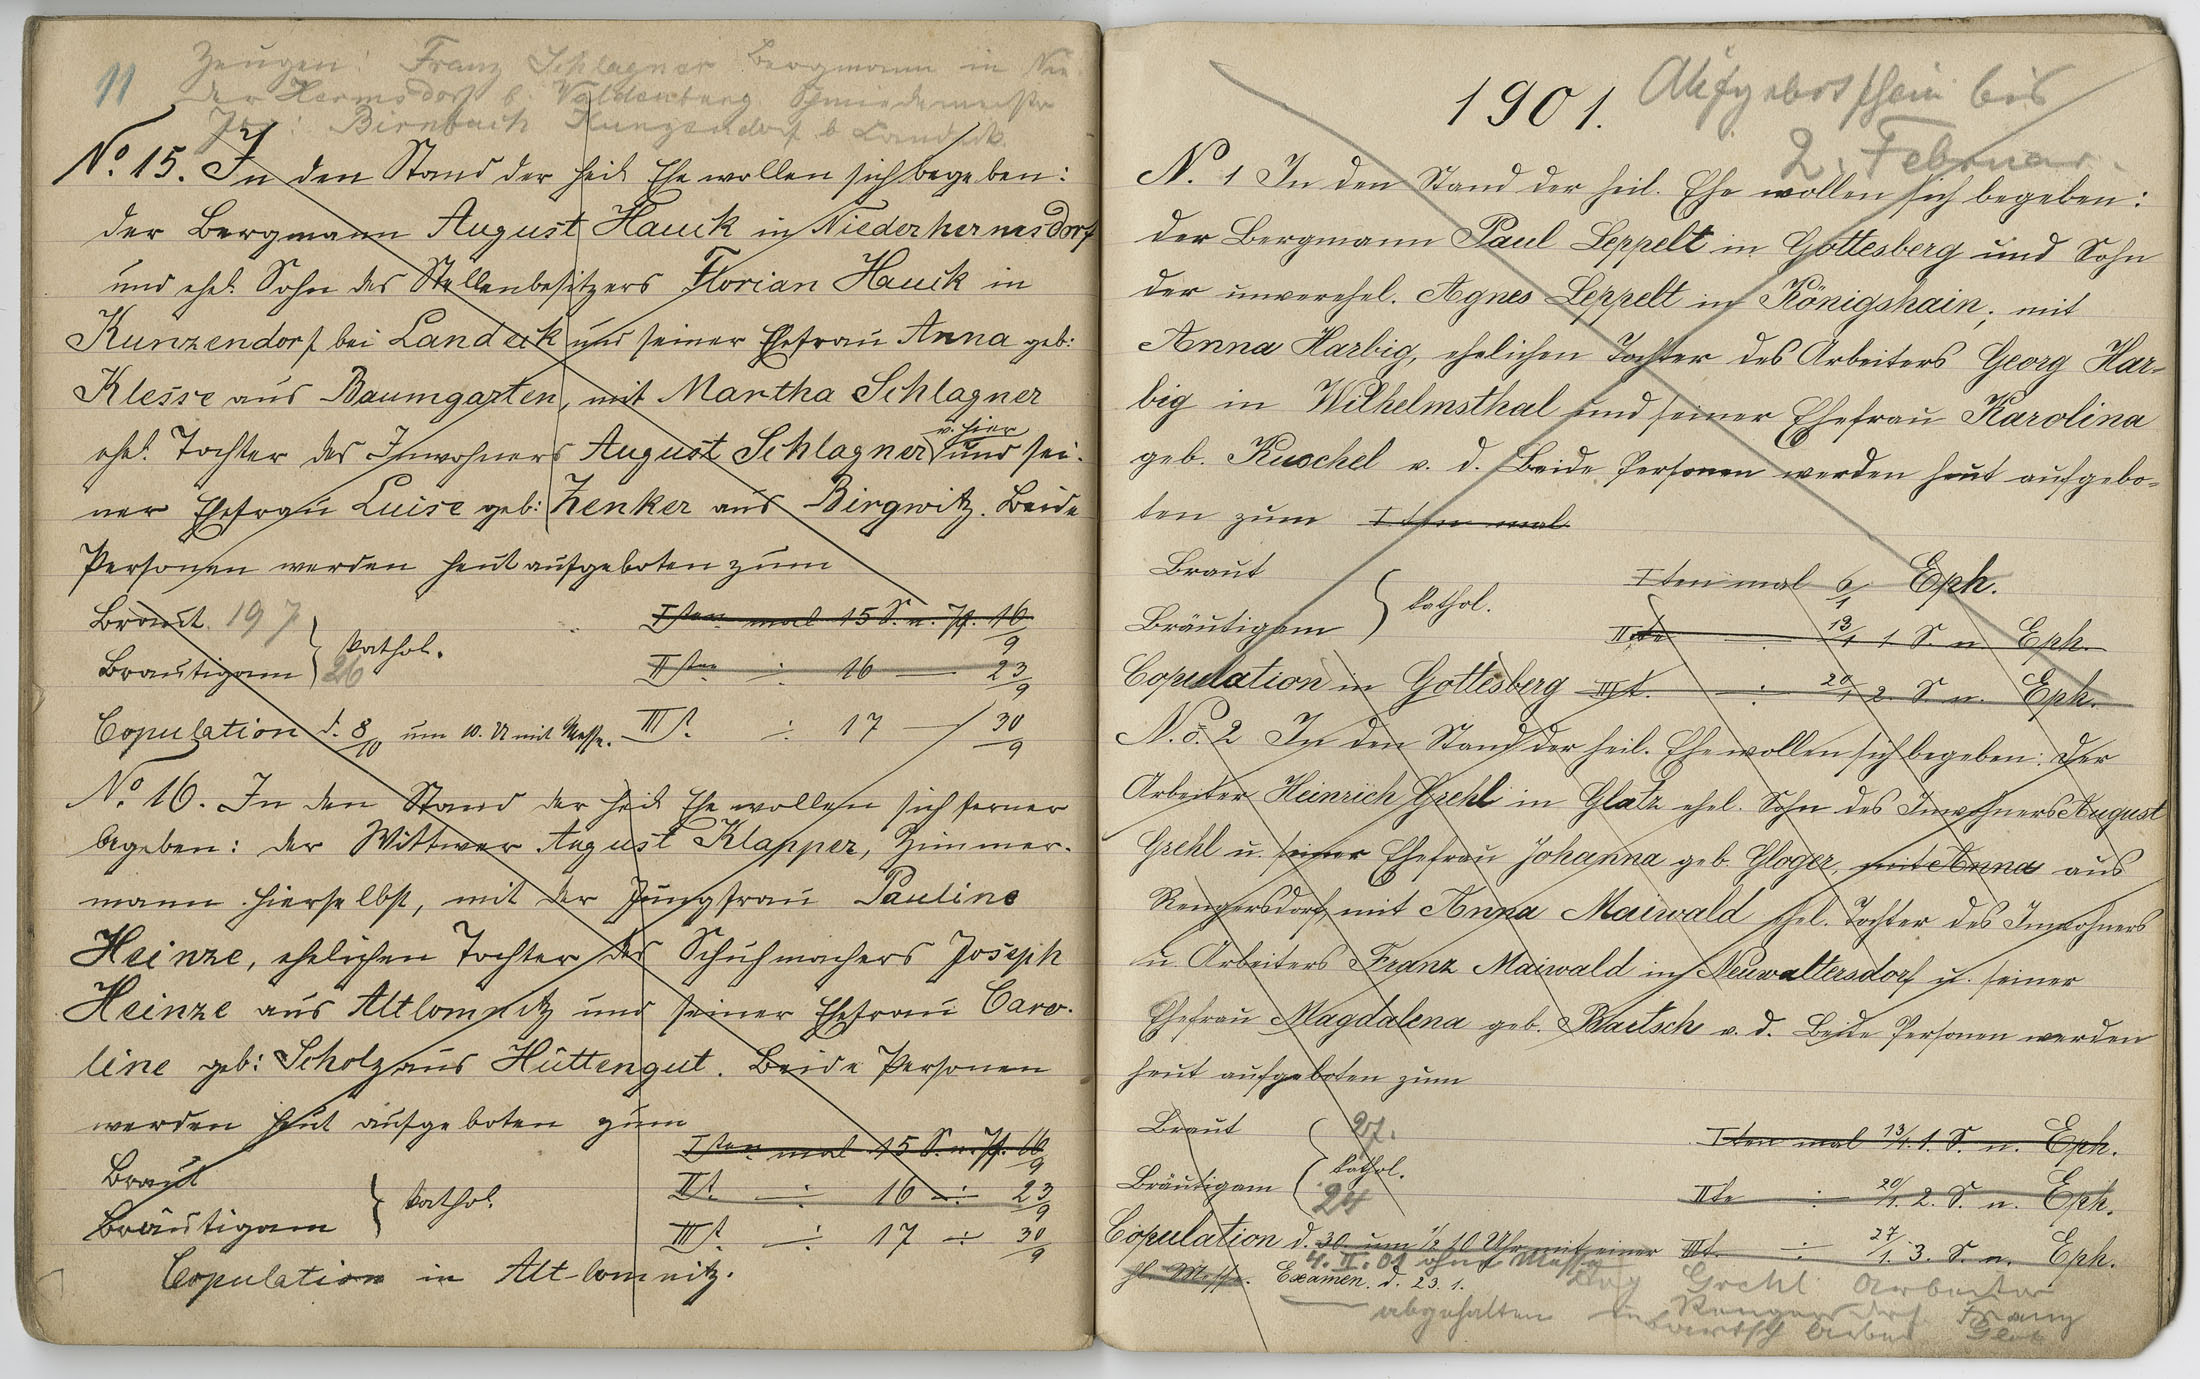 11
Zeugen: Franz Schlagner Bergmann in Nie-
der Hermsdorf b. Waldenburg Schmiedemeister
Jos: Birnbach Kunzendorf b Landeck
No. 15. In den Stand der heil Ehe wollen sich begeben:
der Bergmann August Hauck in Niederhermsdorf
und ehel. Sohn des Stellenbesitzers Florian Hauck in
Kunzendorf bei Landeck und seiner Ehefrau Anna geb:
Klesse aus Baumgarten, mit Martha Schlagner
v. hier
ehel. Tochter des Inwohners August Schlagner und sei-
ner Ehefrau Luise geb: Zenker aus Birgwitz. Beide
Personen werden heut aufgeboten zum
Braut 19 7 Iten mal 15 S. n. Pf. 16/9
Bräutigam } kathol. 26 IIten ÷ 16 — 23/9
Copulation d. 8/10 um 10. U mit Messe. III t. ÷ 17 — 30/9
No. 16. In den Stand der heil Ehe wollen sich ferner
begeben: der Wittwer August Klapper, Zimmer-
mann hierselbst, mit der Jungfrau Pauline
Heinze, ehelichen Tochter des Schuhmachers Joseph
Heinze aus Altlomnitz und seiner Ehefrau Caro-
line geb: Scholz aus Hüttengut. Beide Personen
werden heut aufgeboten zum
Iten mal 15 S. n. Pf. 16/9
Braut II t. ÷ 16 ÷ 23/9
Bräutigam } kathol. III t. ÷ 17 ÷ 30/9
Copulation in Alt-lomnitz.
1901. Aufgebotsschein bis
2. Februar.
N. 1 In den Stand der heil. Ehe wollen sich begeben:
der Bergmann Paul Leppelt in Gottesberg und Sohn
der unverehel. Agnes Leppelt in Königshain, mit
Anna Harbig, ehelichen Tochter des Arbeiters Georg Har-
big in Wilhelmsthal und seiner Ehefrau Karolina
geb. Kuschel v. d. Beide Personen werden heut aufgebo-
ten zum I ten mal
Braut Iten mal 6/1 Eph.
Bräutigam } kathol. IIte ÷ 13/1 1. S. n. Eph.
Copulation in Gottesberg III t. ÷ 20/1 2. S. n. Eph.
No. 2 In den Stand der heil. Ehe wollen sich begeben: der
Arbeiter Heinrich Grehl in Glatz ehel. Sohn des Inwohners August
Grehl u. seiner Ehefrau Johanna geb. Gloger, mit Anna aus
Rengersdorf mit Anna Maiwald ehel. Tochter des Inwohners
u. Arbeiters Franz Maiwald in Neuwaltersdorf u. seiner
Ehefrau Magdalena geb. Bartsch v. d. Beide Personen werden
heut aufgeboten zum
Braut 27. Iten mal 13/1. 1. S. n. Eph.
Bräutigam { kathol. 24 IIte ÷ 20/1. 2. S. n. Eph.
Copulation d. 30 um 1/2 10 Uhr mit einer III t. ÷ 27/1. 3. S. n. Eph.
4. II. 01 ohne Messe
hl. Messe. Examen. d. 23. 1. Grehl Arbeiter
abgehalten in Rengersdorf Franz
Bartsch